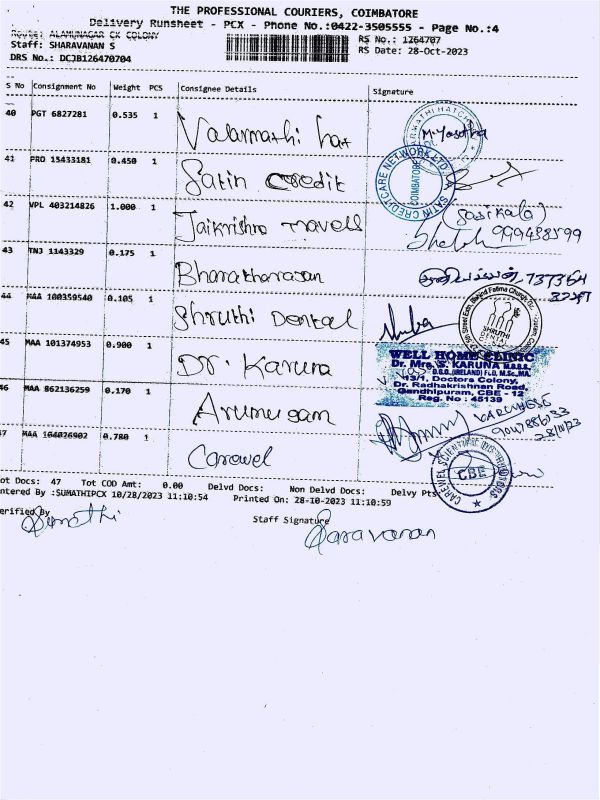 THE PROFESSIONAL COURIERS, COIMBATORE
Delivery Runsheet - PCX - Phone No.:0422-3505555 - Page No.:4
Route: ALAMUNAGAR CK COLONY
RS No.: 1264707
Staff: SHARAVANAN S
RS Date: 28-Oct-2023
DRS No.: DCJB126470704
S No Consignment No Weight PCS Consignee Details Signature
40 PGT 6827281 0.535 1 Valarmathi hat
41 PRO 15433181 0.450 1 Satin Credit
SATIN CREDITCARE NETWORK LTD. COIMBATORE
42 VPL 403214826 1.000 1 Jaikrishna travels
43 TNJ 1143329 0.175 1 Bharatharasan
44 MAA 100359540 0.105 1 Shruthi Dental
SHRUTHI DENTAL
45 MAA 101374953 0.900 1 Dr. Karuna
WELL HOME CLINIC
Dr. Mrs. S. KARUNA M.B.B.S.,
D.G.O.,(IRELAND)
113/1, Doctors Colony,
Dr. Radhakrishnan Road,
Gandhipuram, CBE - 12
Reg. No : 45139
46 MAA 862136259 0.170 1 Arumugam
28/10/23
47 MAA 104026902 0.780 1 Carewel
CBE
Tot Docs: 47 Tot COD Amt: 0.00 Delvd Docs: Non Delvd Docs: Delvy Pts:
Entered By :SUMATHIPCX 10/28/2023 11:10:54 Printed On: 28-10-2023 11:10:59
Verified By Sumathi
Staff Signature Saravanan